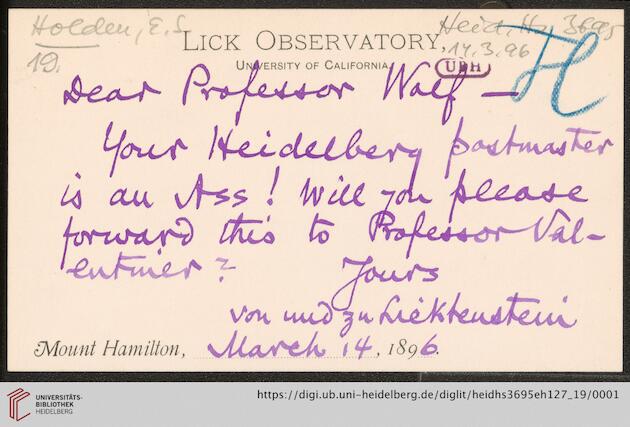 Holden, E.S.
Heid. Hs. 3695
19.
LICK OBSERVATORY,
14.3.96
UNIVERSITY OF CALIFORNIA.
UBH
H
Dear Professor Wolf —
Your Heidelberg postmaster
is an Ass! Will you please
forward this to Professor Val-
entiner? Yours
von und zu Liektenstein
Mount Hamilton, March 14, 1896.
UNIVERSITÄTS-
BIBLIOTHEK
HEIDELBERG
https://digi.ub.uni-heidelberg.de/diglit/heidhs3695eh127_19/0001